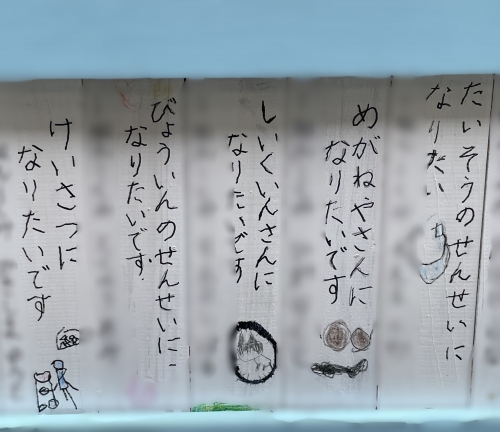 たいそうのせんせいに
なりたい
めがねやさんに
なりたいです
しいくいんさんに
なりたいです
びょういんのせんせいに
なりたいです。
けいさつに
なりたいです